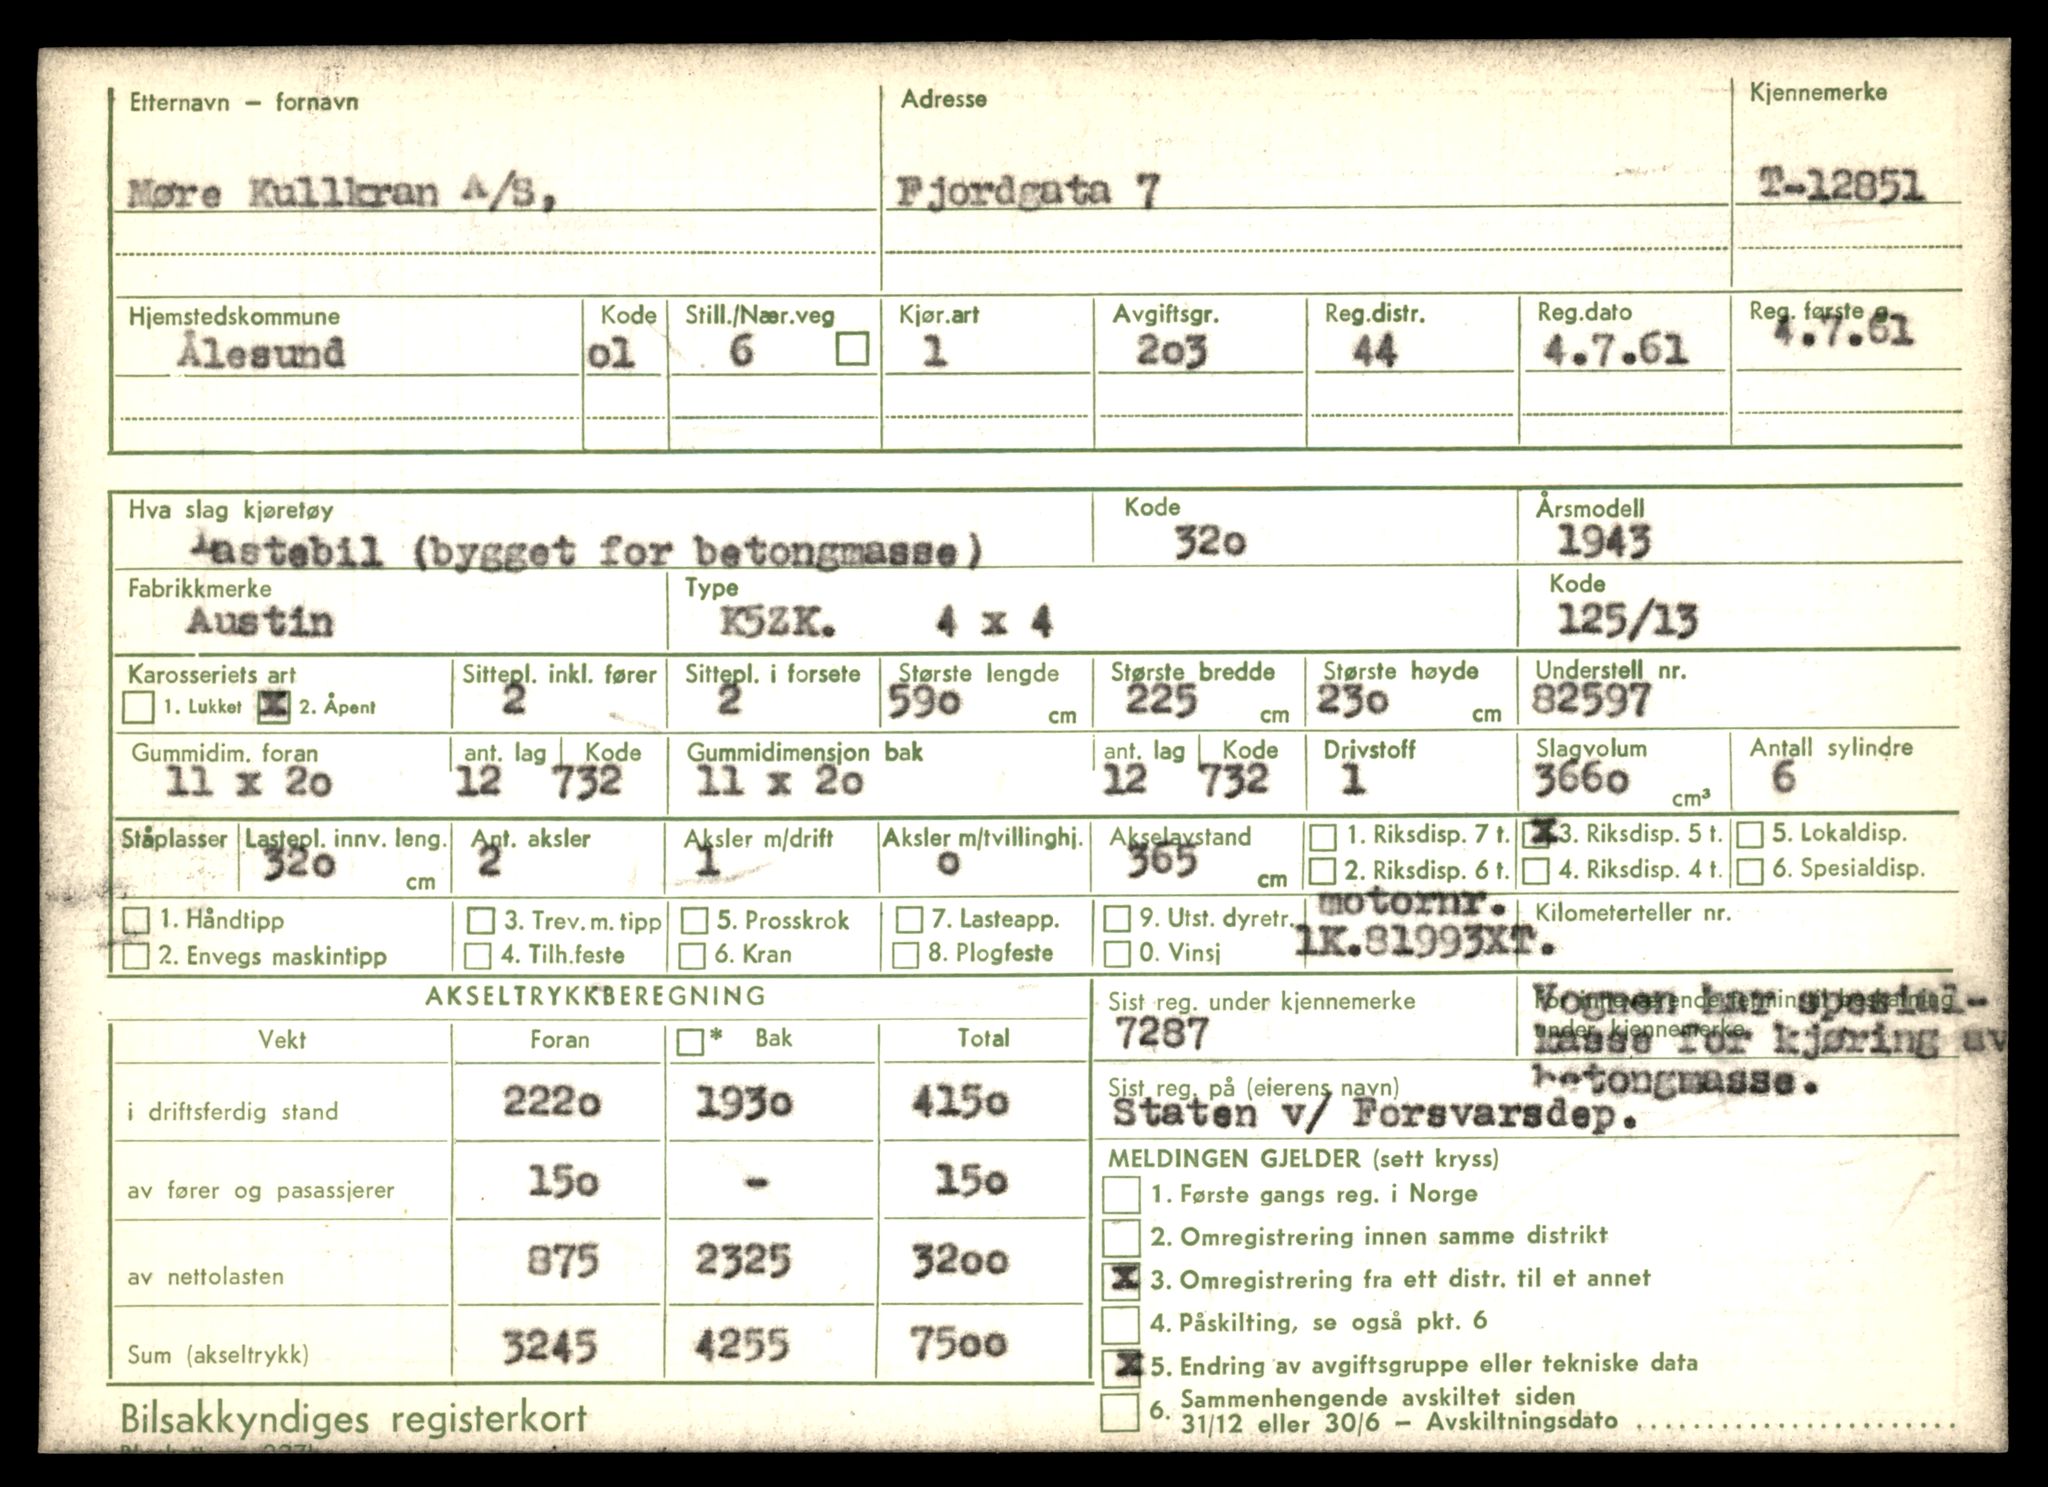 Etternavn – fornavn Adresse Kjennemerke
Møre Kullkran A/S, Fjordgata 7 T-12851
Hjemstedskommune Kode Still./Nær.veg Kjør.art Avgiftsgr. Reg.distr. Reg.dato Reg. første g.
Ålesund o1 6 1 2o3 44 4.7.61 4.7.61
Hva slag kjøretøy Kode Årsmodell
Lastebil (bygget for betongmasse) 32o 1943
Fabrikkmerke Type Kode
Austin K5ZK. 4 x 4 125/13
Karosseriets art Sittepl. inkl. fører Sittepl. i forsete Største lengde Største bredde Største høyde Understell nr.
1. Lukket X 2. Åpent 2 2 59o cm 225 cm 23o cm 82597
Gummidim. foran ant. lag Kode Gummidimensjon bak ant. lag Kode Drivstoff Slagvolum Antall sylindre
11 x 2o 12 732 11 x 2o 12 732 1 366o cm³ 6
Ståplasser Lastepl. innv. leng. Ant. aksler Aksler m/drift Aksler m/tvillinghj. Akselavstand 1. Riksdisp. 7 t. X 3. Riksdisp. 5 t. 5. Lokaldisp.
32o cm 2 1 o 365 cm 2. Riksdisp. 6 t. 4. Riksdisp. 4 t. 6. Spesialdisp.
1. Håndtipp 3. Trev. m. tipp 5. Prosskrok 7. Lasteapp. 9. Utst. dyretr. motornr. Kilometerteller nr.
2. Envegs maskintipp 4. Tilh.feste 6. Kran 8. Plogfeste 0. Vinsj 1K.81993XT.
AKSELTRYKKBEREGNING
Vekt Foran * Bak Total
i driftsferdig stand 222o 193o 415o
av fører og pasassjerer 15o - 15o
av nettolasten 875 2325 32oo
Sum (akseltrykk) 3245 4255 75oo
Sist reg. under kjennemerke
7287
For inneværende termin til beskatning
under kjennemerke
Vognen har spesial-
kasse for kjøring av
betongmasse.
Sist reg. på (eierens navn)
Staten v/ Forsvarsdep.
MELDINGEN GJELDER (sett kryss)
1. Første gangs reg. i Norge
2. Omregistrering innen samme distrikt
X 3. Omregistrering fra ett distr. til et annet
4. Påskilting, se også pkt. 6
X 5. Endring av avgiftsgruppe eller tekniske data
6. Sammenhengende avskiltet siden
31/12 eller 30/6 – Avskiltningsdato ........................
Bilsakkyndiges registerkort